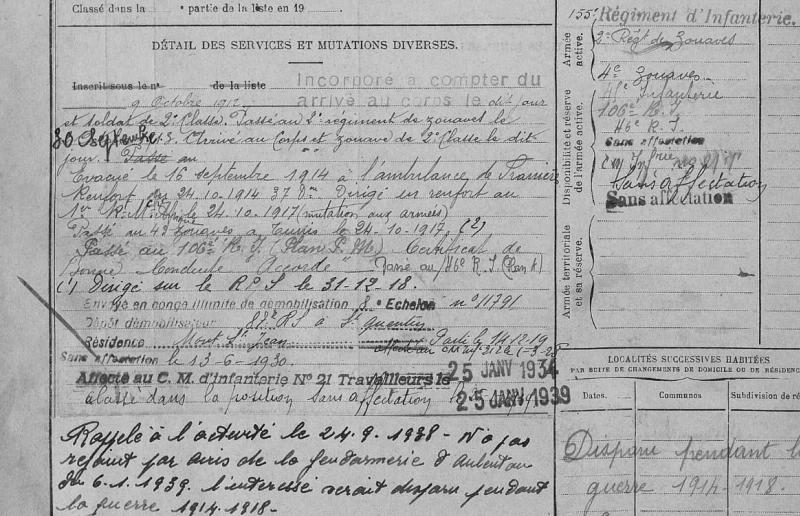 Classé dans la ° partie de la liste en 19
DÉTAIL DES SERVICES ET MUTATIONS DIVERSES.
Inscrit sous le n° de la liste
Incorporé à compter du
9 Octobre 1912. arrivé au corps le dit jour
et soldat de 2e Classe. Passé au 2e régiment de zouaves le
30 Septembre 1913. Arrivé au Corps et zouave de 2e Classe le dit
jour. Passé au
Evacué le 16 septembre 1914 à l'ambulance de
Renfort du 24.10.1914 37 Don Dirigé en renfort au
1er R. M. d'Afrique le 24.10.1917 (mutation aux armées)
Passé au 4e Zouaves à Tunis le 24-10-1917. (2)
Passé au 106e R.I. (Plan P. M) Certificat de
Bonne Conduite "Accordé" Passé au 46e R.I (Plan A)
(1) Dirigé sur le R.P.S le 31-12-18.
Envoyé en congé illimité de démobilisation 8e Echelon n° 11791
Dépôt démobilisateur 87e RI à St Quentin
Résidence Mont St Jean Parti le 14.12.19
Sans affectation le 13-6-1930.
Affecté au C. M. d'infanterie N° 21 Travailleurs le 25 JANV 1934
Classé dans la position sans affectation le 25 JANV 1939
Rappelé à l'activité le 24.9.1938 - N'a pas
rejoint par avis de la gendarmerie d'Aubenton
du 6.1.1939. l'intéressé serait disparu pendant
la guerre 1914.1918-
155e Régiment d'Infanterie.
Armée active.
2e Régt de Zouaves
4e Zouaves
Disponibilité et réserve de l'armée active.
Infanterie
106e R.I.
46e R.I.
Sans affectation
Sans affectation
Sans affectation
Armée territoriale et sa réserve.
LOCALITÉS SUCCESSIVES HABITÉES
PAR SUITE DE CHANGEMENTS DE DOMICILE OU DE RÉSIDENCE
Dates. Communes Subdivision de ré
Disparu pendant la
guerre 1914-1918.